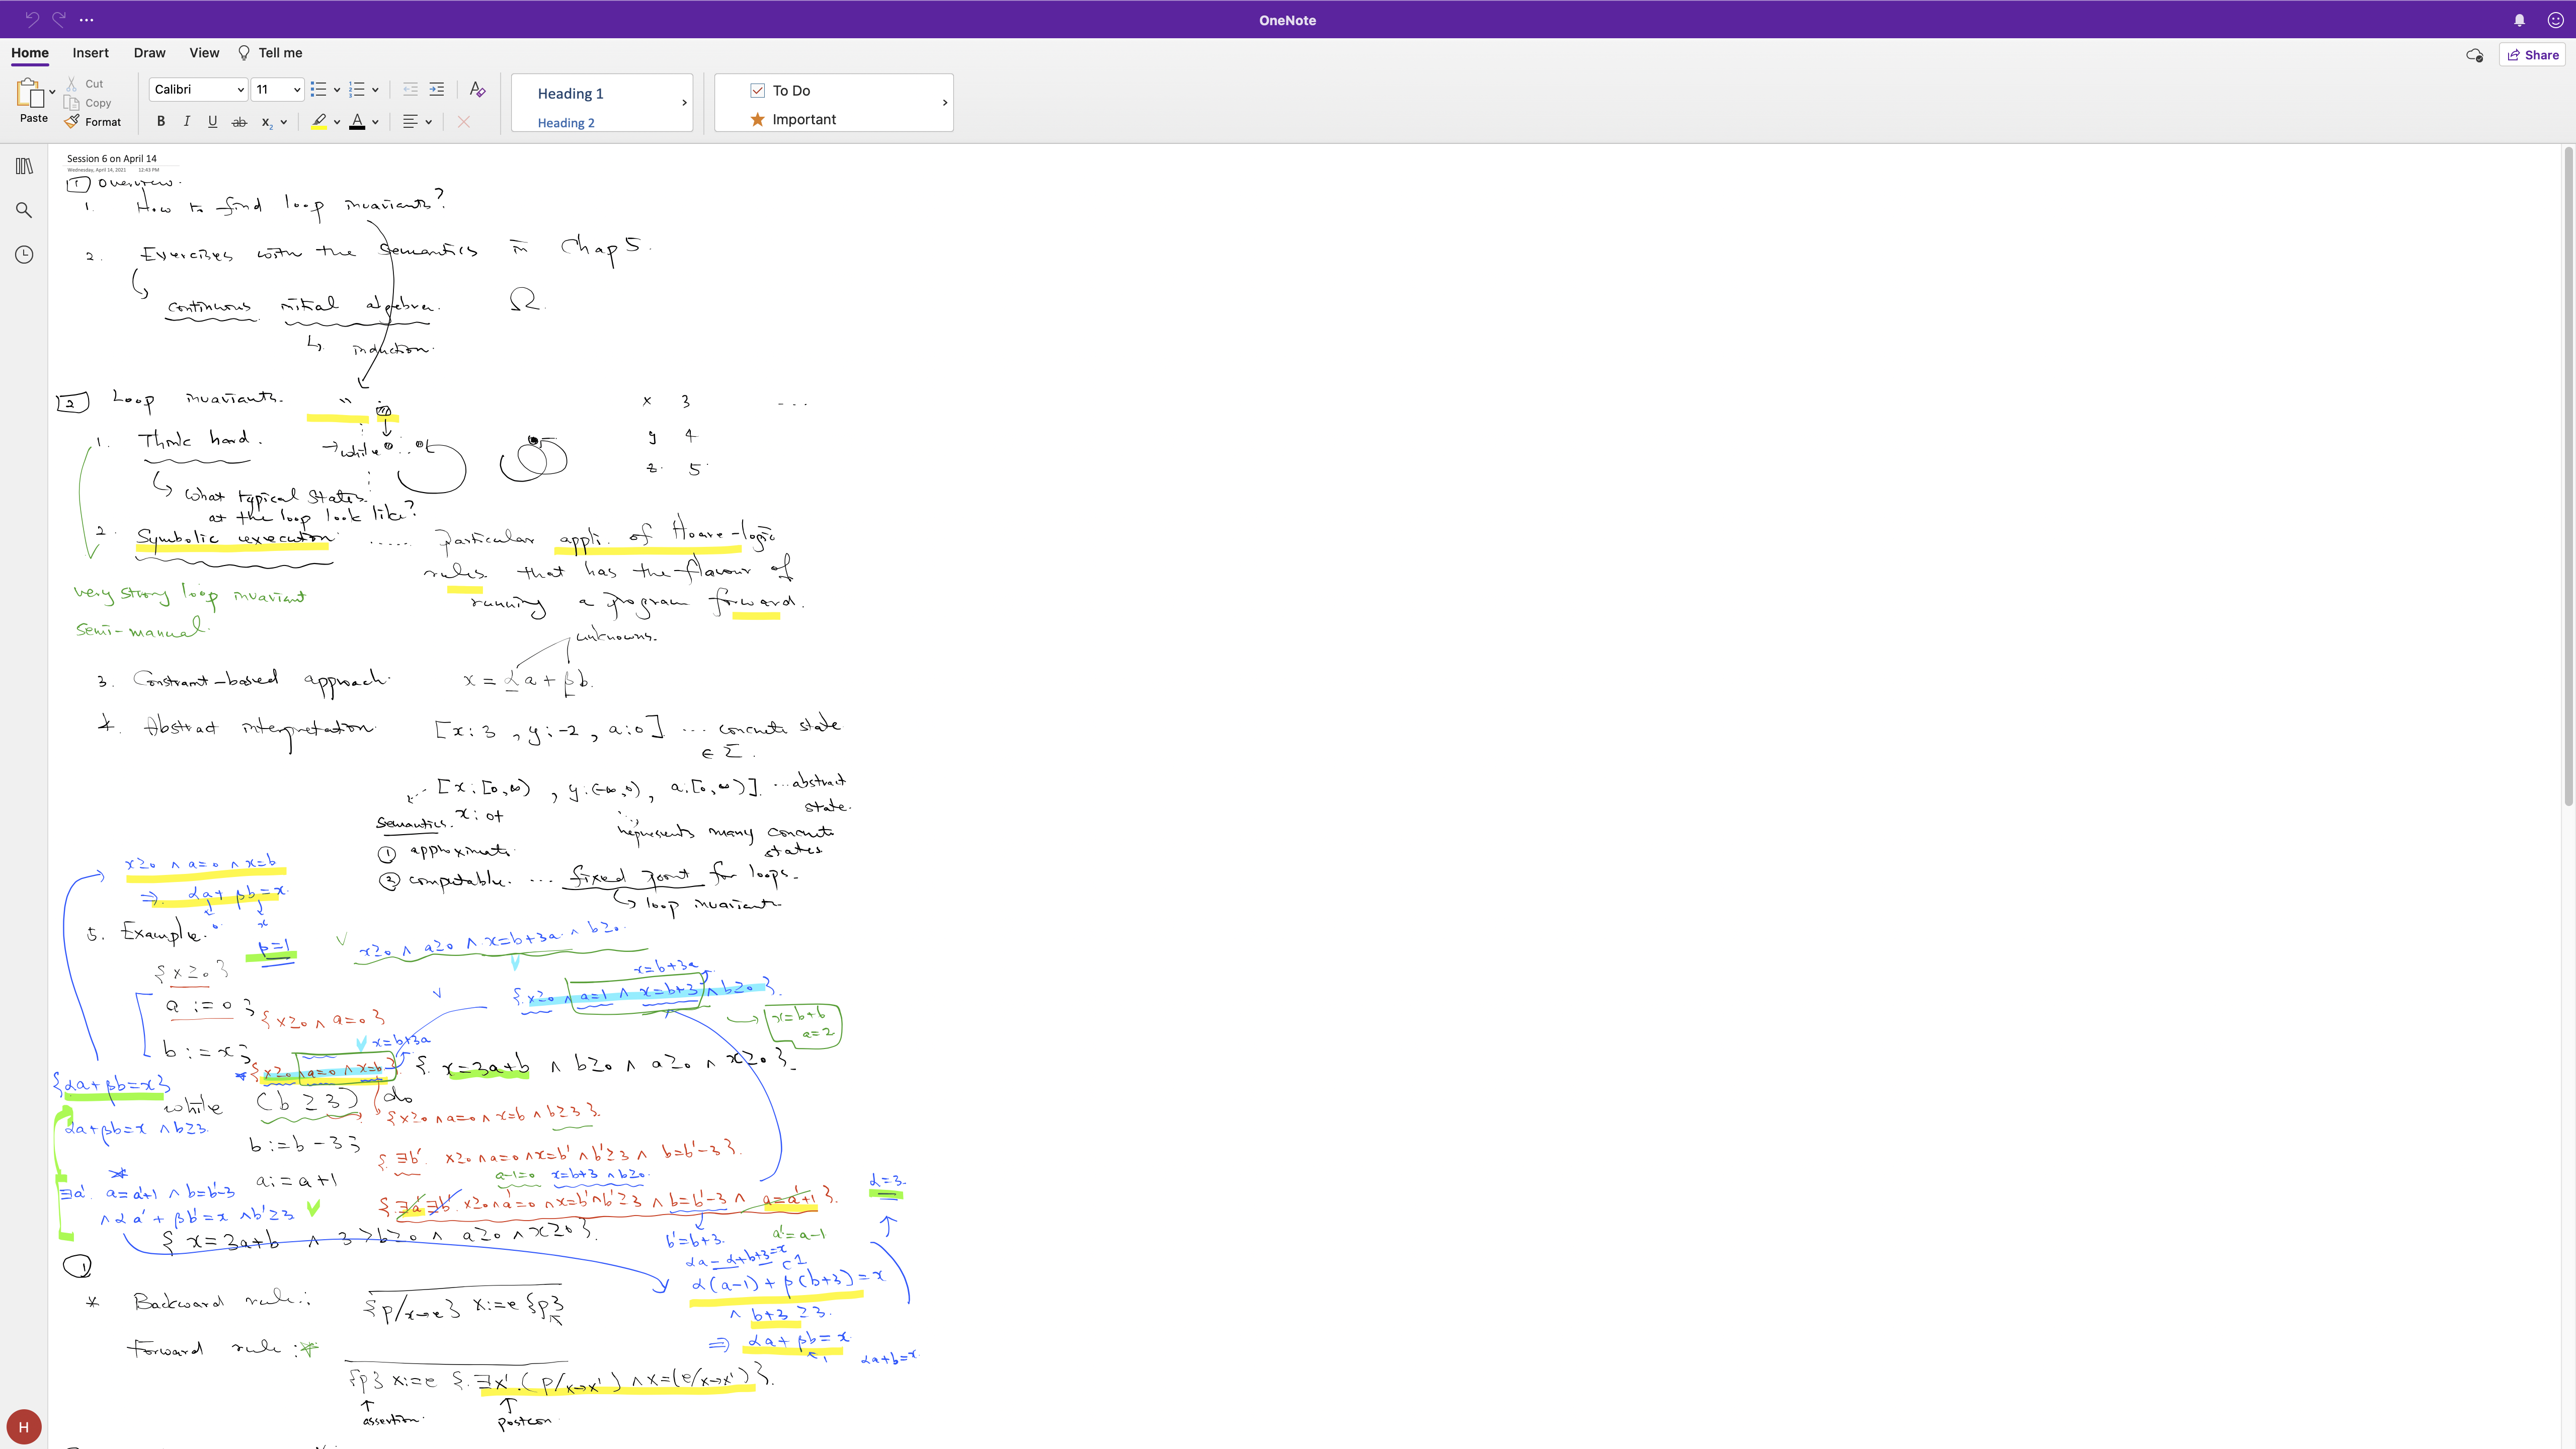 OneNote
Home Insert Draw View Tell me
Share
Paste
Cut
Copy
Format
Calibri 11
Heading 1
Heading 2
To Do
Important
Session 6 on April 14
Wednesday, April 14, 2021 12:43 PM
1 Overview.
1. How to find loop invariants?
2. Exercises with the semantics in Chap 5.
continuous initial algebra. Ω.
↳ induction.
2 Loop invariants.
x 3 ...
1. Think hard.
→ while
y 4
z 5
↳ what typical states
at the loop look like?
2. Symbolic execution ..... particular appli. of Hoare-logic
rules that has the flavour of
running a program forward.
very strong loop invariant
semi-manual.
unknowns.
3. Constraint-based approach. x = αa + βb.
4. Abstract interpretation. [x:3, y:-2, a:0] ... concrete state
∈ Σ.
[x:[0,∞), y:(-∞,0), a:[0,∞)] ... abstract
state.
Semantics.
represents many concrete
states
① approximate.
② computable. ... fixed point for loops.
↳ loop invariants
x≥0 ∧ a=0 ∧ x=b
⇒ αa + βb = x.
5. Example.
β=1
x≥0 ∧ a≥0 ∧ x=b+3a ∧ b≥0.
{x≥0}
x=b+3a
{x≥0 ∧ a=1 ∧ x=b+3 ∧ b≥0}.
a := 0;
{x≥0 ∧ a=0}
x=b+6
a=2
b := x;
x=b+3a
{x≥0 ∧ a=0 ∧ x=b} {x=3a+b ∧ b≥0 ∧ a≥0 ∧ x≥0}.
{αa+βb=x}
while (b ≥ 3) do
{x≥0 ∧ a=0 ∧ x=b ∧ b≥3}.
αa+βb=x ∧ b≥3.
b := b - 3;
{∃b'. x≥0 ∧ a=0 ∧ x=b' ∧ b'≥3 ∧ b=b'-3}.
a-1=0 x=b+3 ∧ b≥0.
a := a+1
∃a'. a=a'+1 ∧ b=b'-3
∧ αa' + βb' = x ∧ b'≥3
{∃a' ∃b'. x≥0 ∧ a'=0 ∧ x=b' ∧ b'≥3 ∧ b=b'-3 ∧ a=a'+1}.
α=3.
{x=3a+b ∧ 3>b≥0 ∧ a≥0 ∧ x≥0}.
b'=b+3. a'=a-1
αa-α+b+3=x
α(a-1) + β(b+3) = x
∧ b+3 ≥ 3.
⇒ αa + βb = x.
αa+b=x.
1
* Backward rule: {p/x→e} x:=e {p}
Forward rule:* {p} x:=e {∃x'.(p/x→x') ∧ x=(e/x→x')}.
↑ assertion.
↑ postcon.
H